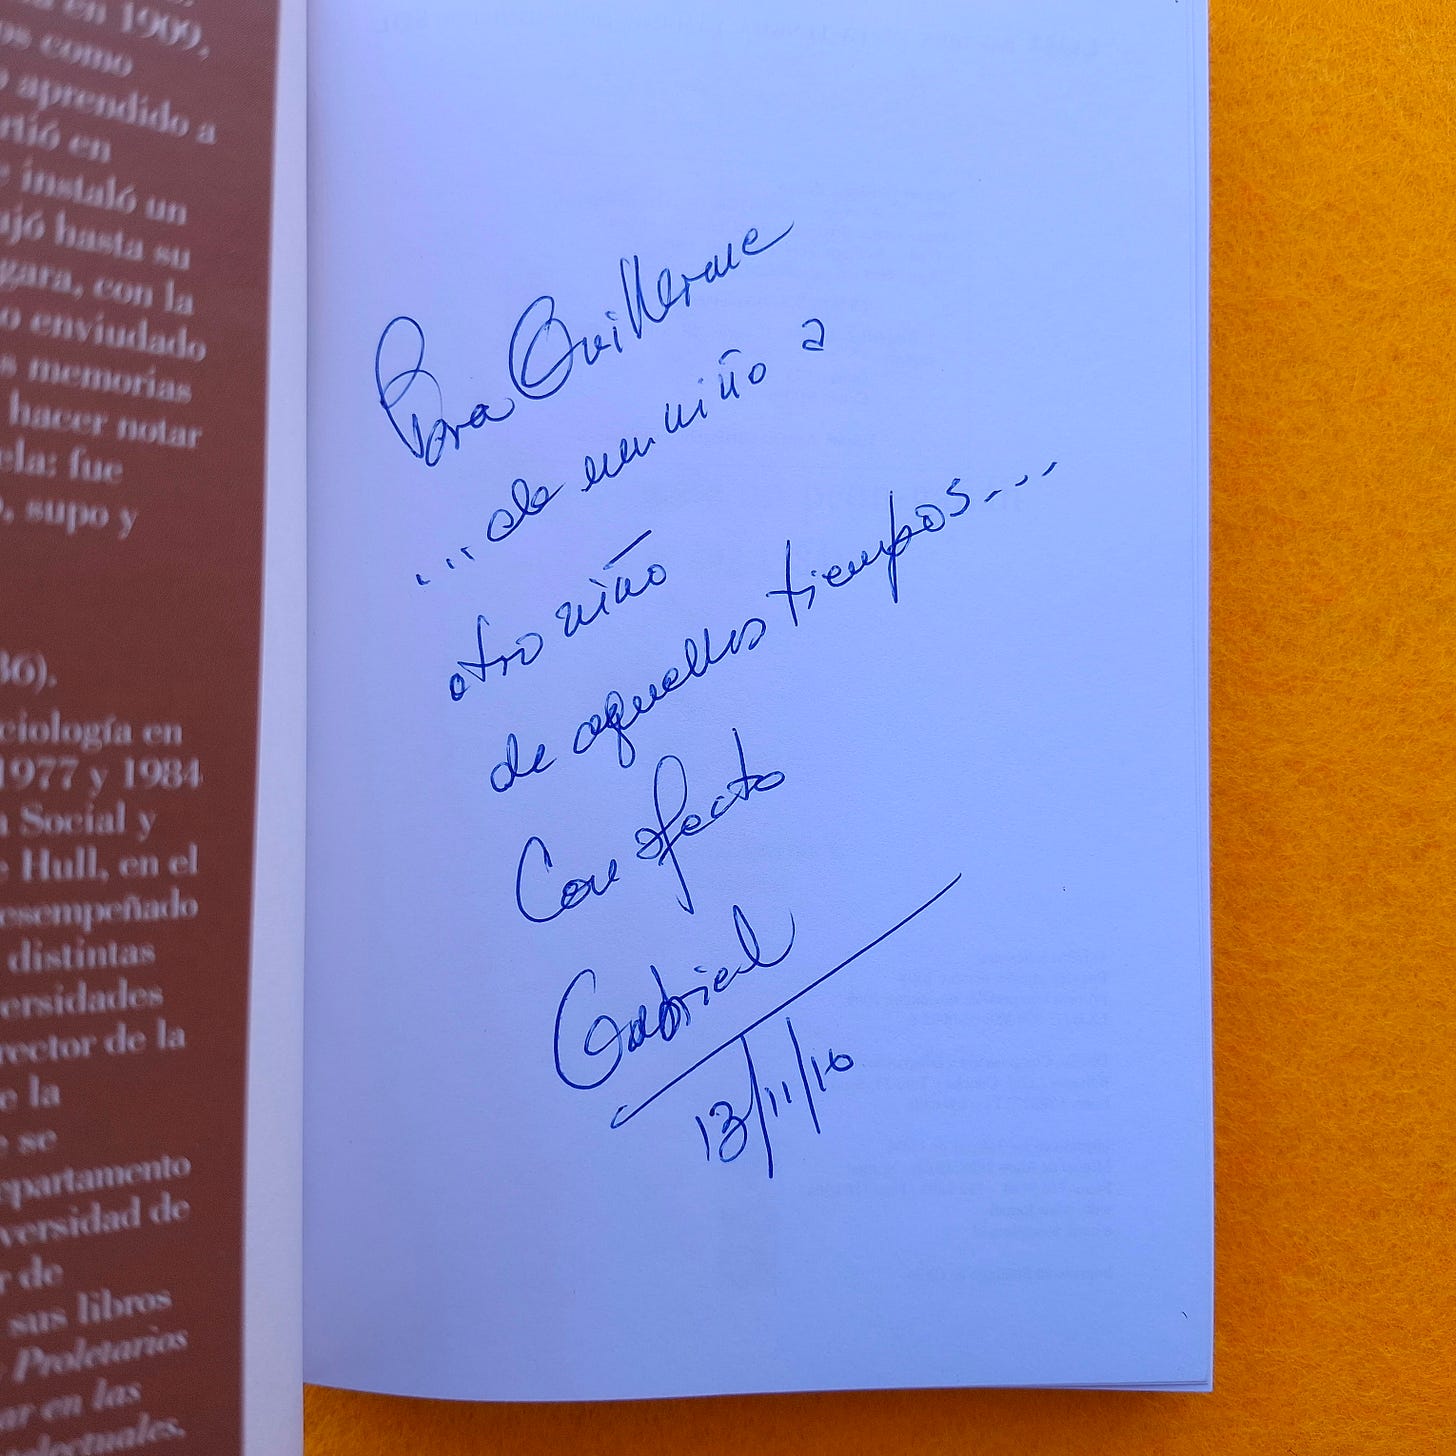 a en 1909,
os como
aprendido a
rtió en
e instaló un
ajó hasta su
gara, con la
o enviudado
s memorias
hacer notar
ela: fue
, supo y
36).
ciología en
1977 y 1984
a Social y
e Hull, en el
esempeñado
distintas
versidades
rector de la
e la
e se
epartamento
versidad de
r de
sus libros
y Proletarios
ar en las
telectuales.
Para Guillermo
... de un niño a
otro niño
de aquellos tiempos...
Con afecto
Gabriel
13/11/16